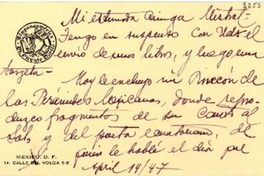 Mi estimada amiga Mistral
Tengo en suspenso con Ud. el
envío de unos libros, y luego, una
tarjeta -
Hoy le incluyo un Rincón de
las Pirámides Mexicanas, donde repro-
duzco fragmentos de su Canto al
Sol, y del poeta ecuatoriano, de
quien le hablé el día que
April 14/47
MEXICO, D. F.
1A. CALLE DEL VOLGA 5-E